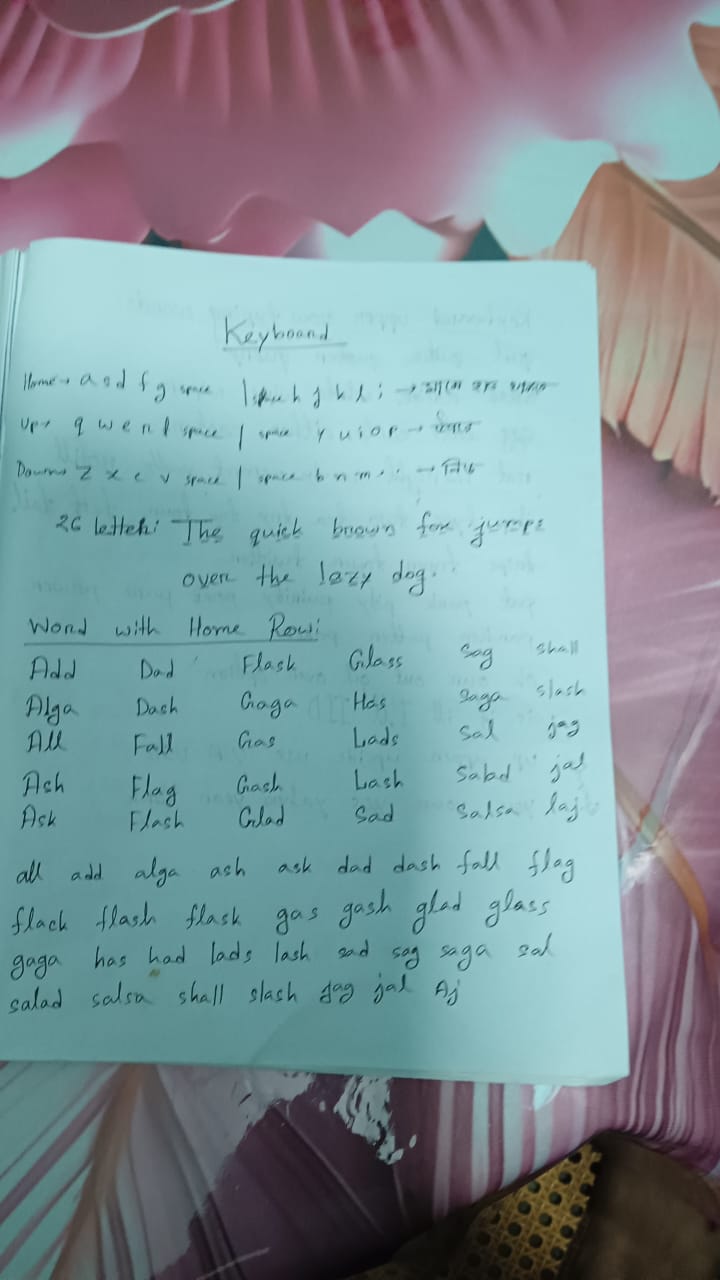 Keyboard
Home→ a s d f g space | space h j k l ; →
Up→ q w e r t space | space y u i o p → উপরে
Down→ z x c v space | space b n m , . → নিচে
26 letter: The quick brown fox jumps
over the lazy dog.
Word with Home Row:
Add Dad Flask Glass Sag shall
Alga Dash Gaga Has Saga slash
All Fall Gas Lads Sal jag
Ash Flag Gash Lash Salad jal
Ask Flash Glad Sad Salsa laj
all add alga ash ask dad dash fall flag
flack flash flask gas gash glad glass
gaga has had lads lash sad sag saga sal
salad salsa shall slash jag jal Aj